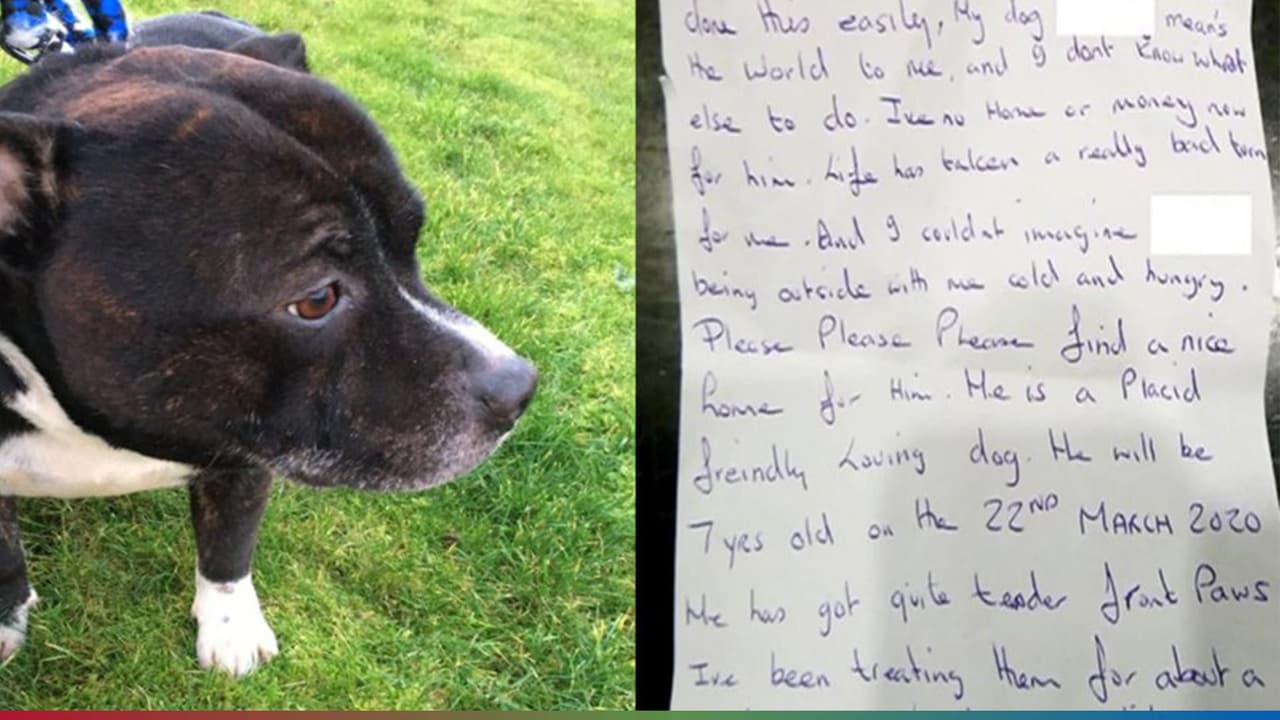 done this easily, My dog mean's
the world to me, and I dont know what
else to do. Ive no Home or money now
for him. Life has taken a really bad turn
for me. And I couldnt imagine
being outside with me cold and hungry.
Please Please Please find a nice
home for Him. He is a Placid
freindly Loving dog. He will be
7 yrs old on the 22ND MARCH 2020
He has got quite tender front Paws
Ive been treating them for about a